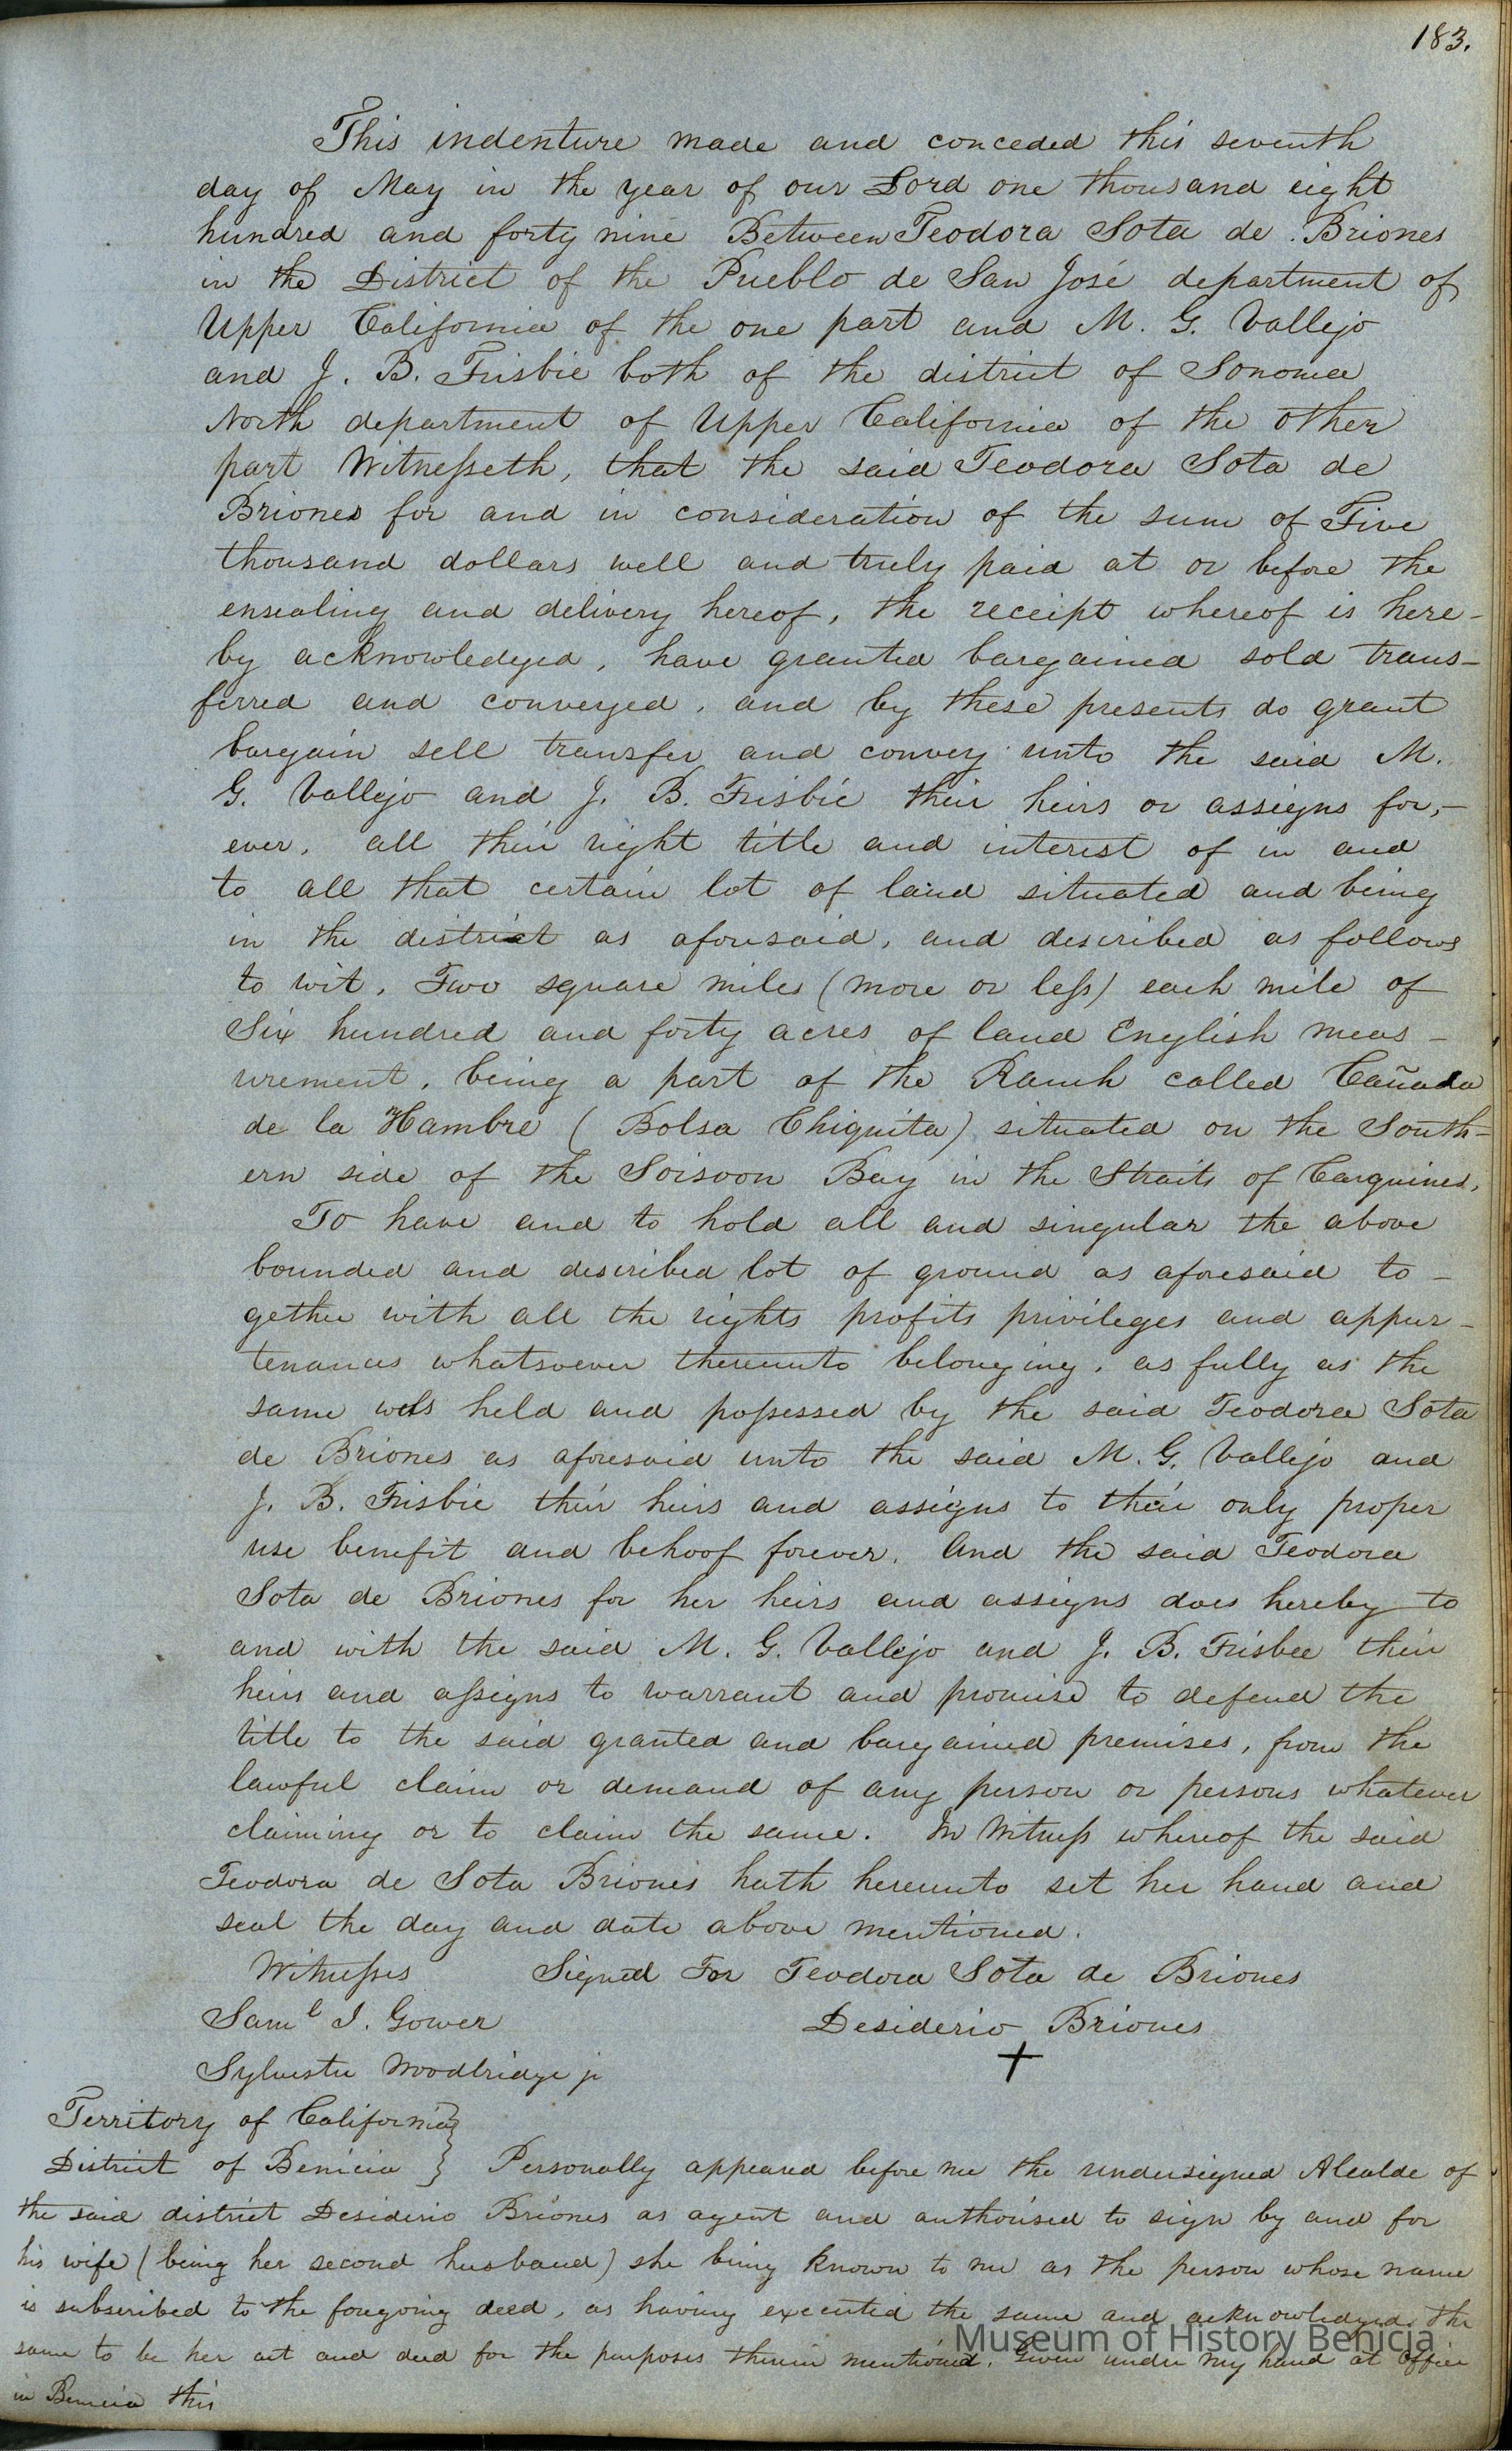 183.
This indenture made and conceded this seventh
day of May in the year of our Lord one thousand eight
hundred and forty nine Between Teodora Sota de Briones
in the District of the Pueblo de San José department of
Upper California of the one part and M. G. Vallejo
and J. B. Frisbie both of the district of Sonoma
North department of Upper California of the other
part Witnesseth, that the said Teodora Sota de
Briones for and in consideration of the sum of Five
thousand dollars well and truly paid at or before the
ensealing and delivery hereof, the receipt whereof is here-
by acknowledged, have granted bargained sold trans-
ferred and conveyed, and by these presents do grant
bargain sell transfer and convey unto the said M.
G. Vallejo and J. B. Frisbie their heirs or assigns for,-
ever, all their right title and interest of in and
to all that certain lot of land situated and being
in the district as aforesaid, and described as follows
to wit, Two square miles (more or less) each mile of
Six hundred and forty acres of land English meas-
urement, being a part of the Ranch called Cañada
de la Hambre (Bolsa Chiquita) situated on the South-
ern side of the Soisoon Bay in the Straits of Carquines,
To have and to hold all and singular the above
bounded and described lot of ground as aforesaid to-
gether with all the rights profits privileges and appur-
tenances whatsoever thereunto belonging, as fully as the
same was held and possessed by the said Teodora Sota
de Briones as aforesaid unto the said M. G. Vallejo and
J. B. Frisbie their heirs and assigns to their only proper
use benefit and behoof forever. And the said Teodora
Sota de Briones for her heirs and assigns does hereby to
and with the said M. G. Vallejo and J. B. Frisbee their
heirs and assigns to warrant and promise to defend the
title to the said granted and bargained premises, from the
lawful claim or demand of any person or persons whatever
claiming or to claim the same. In Witness whereof the said
Teodora de Sota Briones hath hereunto set her hand and
seal the day and date above mentioned.
Witnesses Signed For Teodora Sota de Briones
Saml S. Gower Desiderio Briones
+
Sylvester Woodbridge jr
Territory of California }
District of Benicia } Personally appeared before me the undersigned Alcalde of
the said district Desiderio Briones as agent and authorised to sign by and for
his wife (being her second husband) she being known to me as the person whose name
is subscribed to the foregoing deed, as having executed the same and acknowledged the
same to be her act and deed for the purposes therein mentioned. Given under my hand at office
in Benicia this
Museum of History Benicia